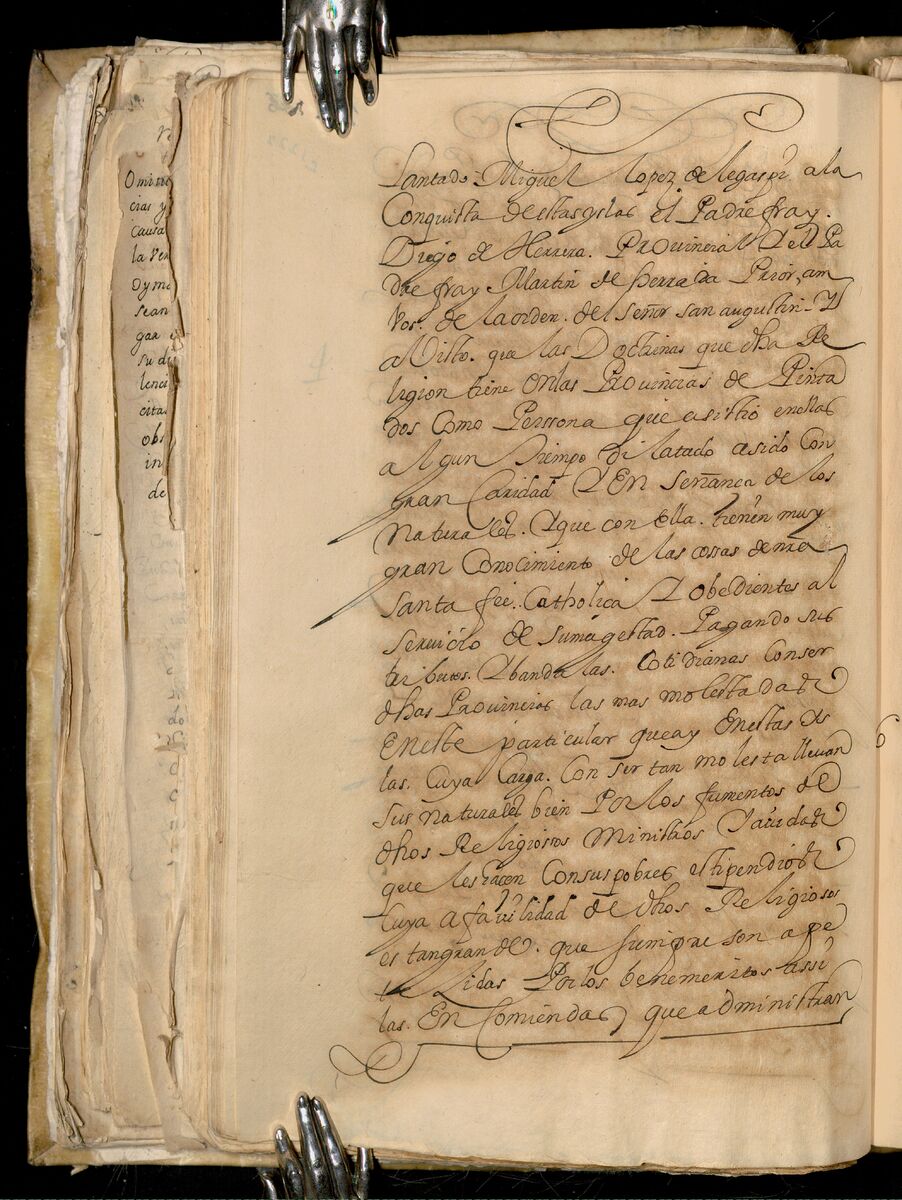 O mini
cias y
causa
la ver
Oyme
sean
gar
su di
lenci
cita
obs
in
de
lantado Miguel lopez de legaspi a la
Conquista de estas yslas el Padre fray
Diego de Herrera Provincial Y el Pa
dre fray Martin de herrada Prior, am
vos de la orden del señor san augustin Y
a Visto que las Doctrinas que dha Re
ligion tiene en las Provincias de Pinta
dos Como Perssona que asistio en ellas
algun tiempo dilatado a sido Con
gran Caridad Y En señanca de los
naturales. Y que con Ella tienen muy
gran Conocimiento de las cossas de nra
santa fee Catholica Y obedientes al
servicio de su magestad. Pagando sus
tributos. Y bandalas Cotidianas Con ser
dhas Provincias las mas molestadas
En este particular que ay En estas Ys
las. Cuya Carga Con ser tan molesta llevan
sus naturales bien Por los fumentos de
dhos Religiosos ministros Y a
que les hacen Con sus pobres estipendios
Cuya afavilidad de dhos Religiosos
es tan grande. que siempre son ape
te Lidas Por los benemeritos assi
las En Comiendas que administran